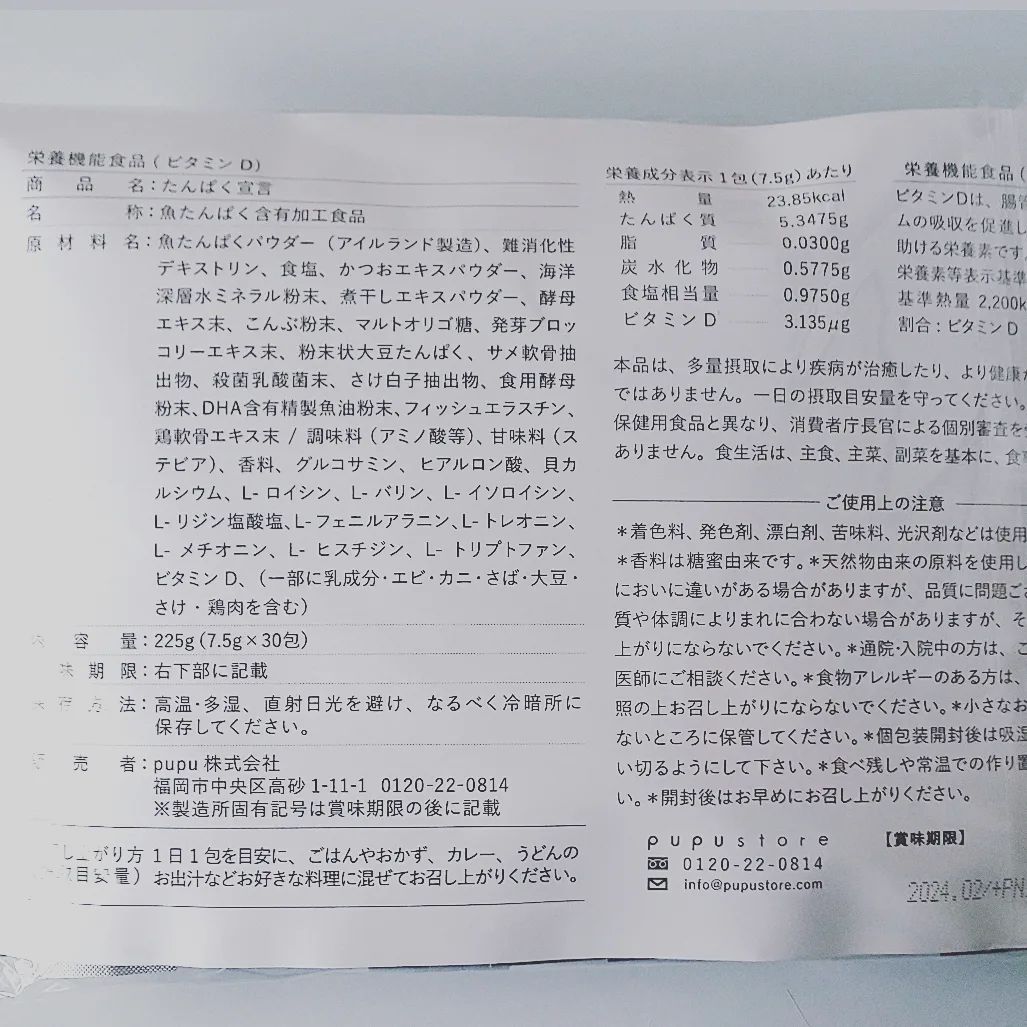 栄養機能食品(ビタミンD)
商品名:たんぱく宣言
名称:魚たんぱく含有加工食品
原材料名:魚たんぱくパウダー(アイルランド製造)、難消化性
デキストリン、食塩、かつおエキスパウダー、海洋
深層水ミネラル粉末、煮干しエキスパウダー、酵母
エキス末、こんぶ粉末、マルトオリゴ糖、発芽ブロッ
コリーエキス末、粉末状大豆たんぱく、サメ軟骨抽
出物、殺菌乳酸菌末、さけ白子抽出物、食用酵母
粉末、DHA含有精製魚油粉末、フィッシュエラスチン、
鶏軟骨エキス末/調味料(アミノ酸等)、甘味料(ス
テビア)、香料、グルコサミン、ヒアルロン酸、貝カ
ルシウム、L-ロイシン、L-バリン、L-イソロイシン、
L-リジン塩酸塩、L-フェニルアラニン、L-トレオニン、
L-メチオニン、L-ヒスチジン、L-トリプトファン、
ビタミンD、(一部に乳成分・エビ・カニ・さば・大豆・
さけ・鶏肉を含む)
容量:225g(7.5g×30包)
味期限:右下部に記載
保存方法:高温・多湿、直射日光を避け、なるべく冷暗所に
保存してください。
販売者:pupu株式会社
福岡市中央区高砂1-11-1 0120-22-0814
※製造所固有記号は賞味期限の後に記載
し上がり方 1日1包を目安に、ごはんやおかず、カレー、うどんの
取目安量) お出汁などお好きな料理に混ぜてお召し上がりください。
栄養成分表示1包(7.5g)あたり
熱量 23.85kcal
たんぱく質 5.3475g
脂質 0.0300g
炭水化物 0.5775g
食塩相当量 0.9750g
ビタミンD 3.135μg
栄養機能食品(
ビタミンDは、腸管
ムの吸収を促進し
助ける栄養素です
栄養素等表示基準
基準熱量 2,200k
割合:ビタミンD
本品は、多量摂取により疾病が治癒したり、より健康が
ではありません。一日の摂取目安量を守ってください。
保健用食品と異なり、消費者庁長官による個別審査を
ありません。食生活は、主食、主菜、副菜を基本に、食
ご使用上の注意
*着色料、発色剤、漂白剤、苦味料、光沢剤などは使用
*香料は糖蜜由来です。*天然物由来の原料を使用し
においに違いがある場合がありますが、品質に問題ご
質や体調によりまれに合わない場合がありますが、そ
上がりにならないでください。*通院・入院中の方は、
医師にご相談ください。*食物アレルギーのある方は、
照の上お召し上がりにならないでください。*小さなお
ないところに保管してください。*個包装開封後は吸湿
い切るようにして下さい。*食べ残しや常温での作り置
い。*開封後はお早めにお召し上がりください。
pupustore
0120-22-0814
info@pupustore.com
【賞味期限】
2024.02/+PN